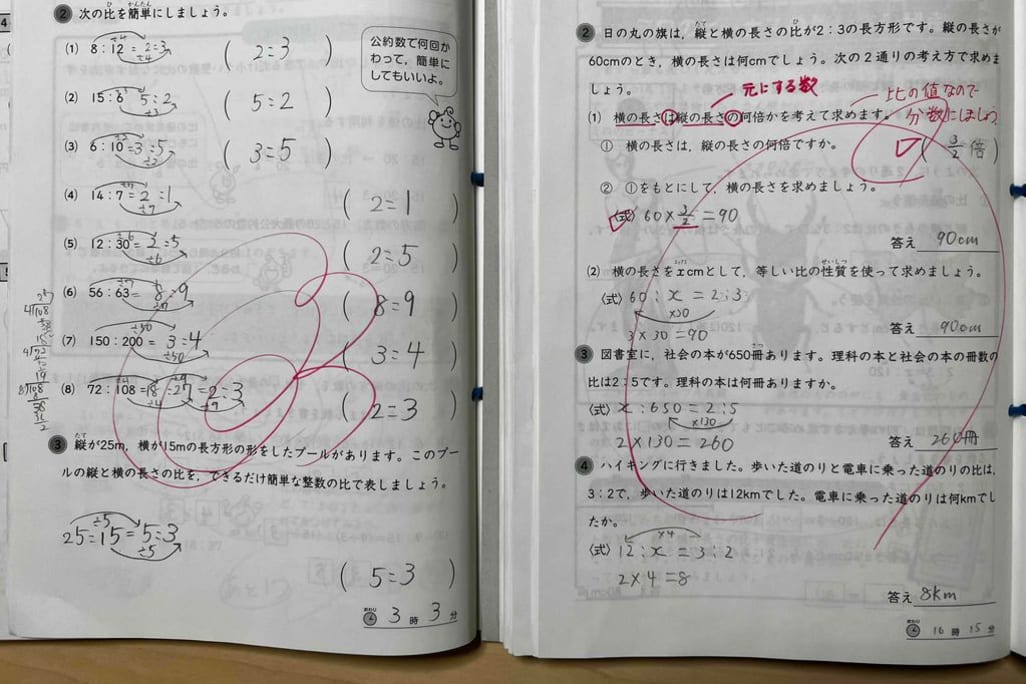 2 次の比を簡単にしましょう。
(1) 8:12 = 2:3 ( 2:3 )
÷4
÷4
公約数で何回か
わって，簡単に
してもいいよ。
(2) 15:6 5:2 ( 5:2 )
÷3
(3) 6:10=3:5 ( 3:5 )
÷2
÷2
(4) 14:7=2:1 ( 2:1 )
÷7
÷7
(5) 12:30=2:5 ( 2:5 )
÷6
÷6
(6) 56:63=8:9 ( 8:9 )
÷7
÷7
(7) 150:200=3:4 ( 3:4 )
÷50
÷50
(8) 72:108=18:27=2:3 ( 2:3 )
÷4 ÷9
÷4 ÷9
3 縦が25m，横が15mの長方形の形をしたプールがあります。このプー
ルの縦と横の長さの比を，できるだけ簡単な整数の比で表しましょう。
÷5
25:15=5:3
÷5
( 5:3 )
おわり 3時3分
2 日の丸の旗は，縦と横の長さの比が2:3の長方形です。縦の長さが
60cmのとき，横の長さは何cmでしょう。次の2通りの考え方で求めま
しょう。
元にする数
比の値なので
分数にしましょう
(1) 横の長さは縦の長さの何倍かを考えて求めます。
① 横の長さは，縦の長さの何倍ですか。
( 3/2 倍 )
② ①をもとにして，横の長さを求めましょう。
〈式〉60×3/2=90
答え 90cm
(2) 横の長さをxcmとして，等しい比の性質を使って求めましょう。
〈式〉60:x=2:3
×30
3×30=90
答え 90cm
3 図書室に，社会の本が650冊あります。理科の本と社会の本の冊数の
比は2:5です。理科の本は何冊ありますか。
〈式〉x:650=2:5
×130
2×130=260
答え 260冊
4 ハイキングに行きました。歩いた道のりと電車に乗った道のりの比は，
3:2で，歩いた道のりは12kmでした。電車に乗った道のりは何kmでし
たか。
×4
〈式〉12:x=3:2
2×4=8
答え 8km
おわり 16時15分